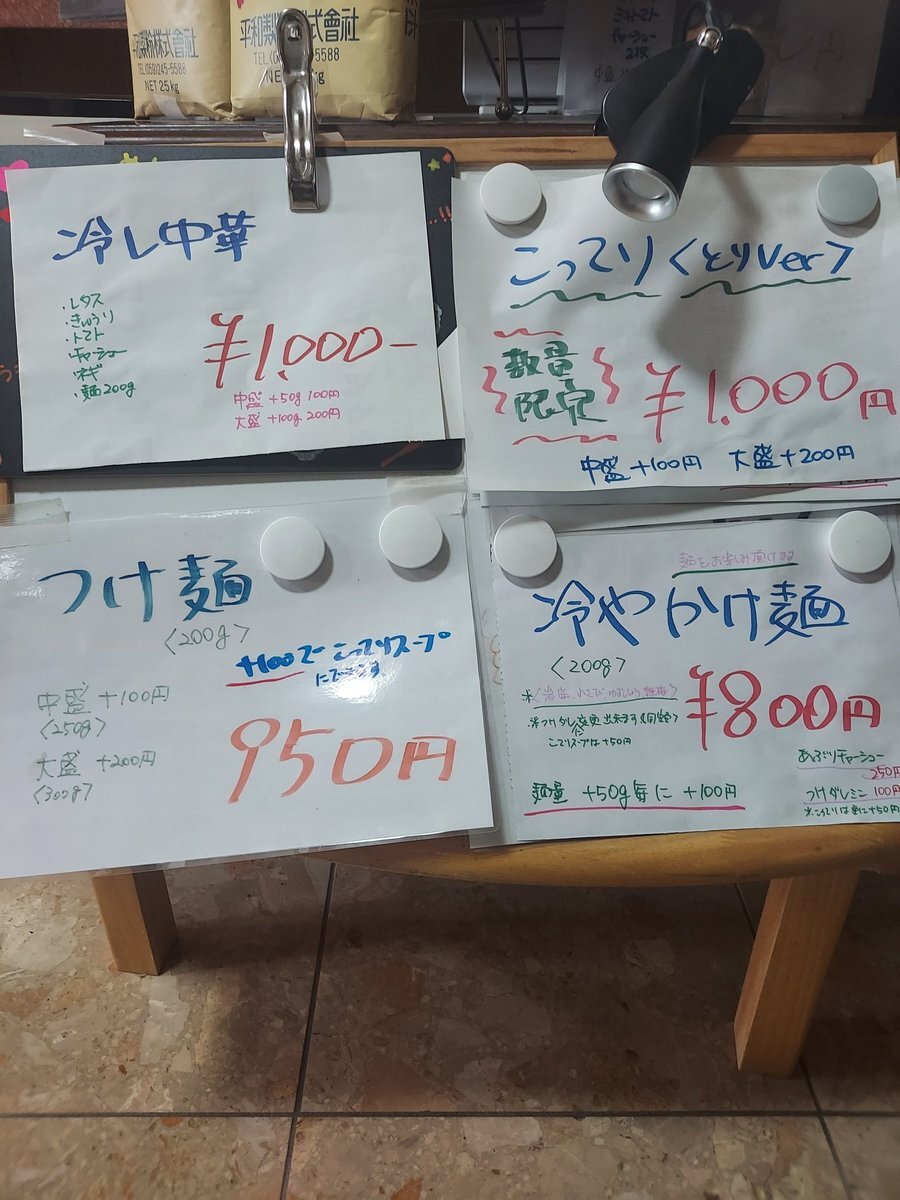 平和製粉株式會社
TEL(059)245-5588
NET 25kg
平和製粉株式會社
5588
ミニトマト
チャーシュー
冷し中華
・レタス
・きゅうり
・トマト
・チャーシュー
・ネギ
・麺200g
¥1,000-
中盛 +50g 100円
大盛 +100g 200円
こってり<とりVer>
数量
限定
¥1,000円
中盛+100円 大盛+200円
つけ麺
<200g>
+100でこってりスープ
にできます
中盛 +100円
<250g>
大盛 +200円
<300g>
950円
麺をお楽しみ頂ける
冷やかけ麺
<200g>
¥800円
※つけダレに変更出来ます<同価>
こってりスープは+50円
麺量 +50g毎に +100円
あぶりチャーシュー
250円
つけダレミニ 100円
※こってりは更に+50円